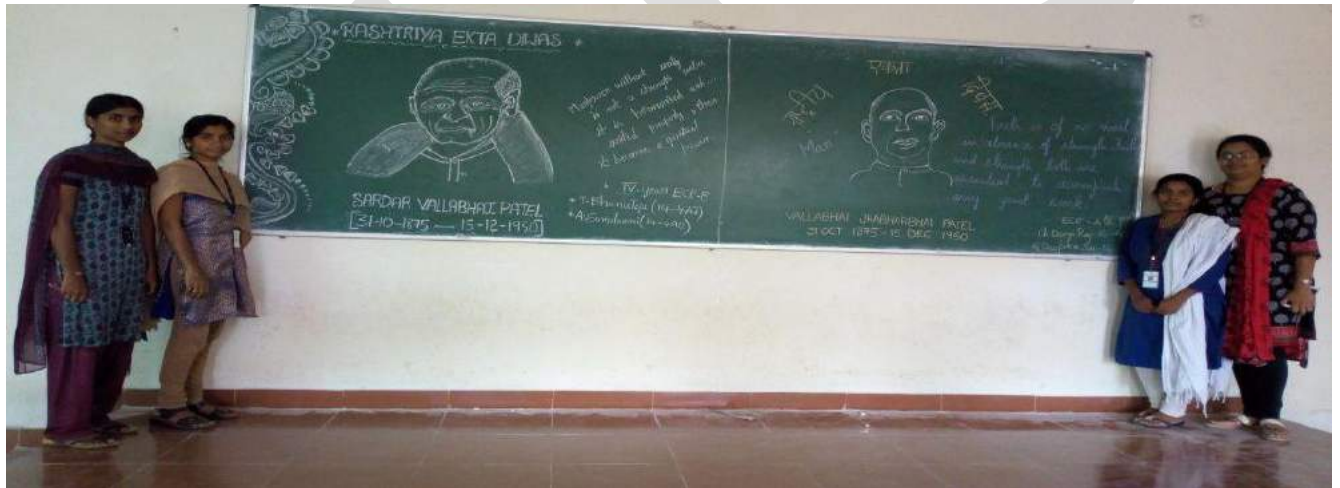 RASHTRIYA EKTA DIWAS
Manpower without unity
is not a strength unless
it is harmonized and
united properly, then
it becomes a spiritual
power
IV-year ECE-B
SARDAR VALLABHAI PATEL
[31-10-1875 — 15-12-1950]
एकता
Faith is of no avail
in absence of strength. Faith
and strength, both are
essential to accomplish
any great work.
VALLABHAI JHABHARBHAI PATEL
31 OCT 1875 - 15 DEC 1950
ECE-A